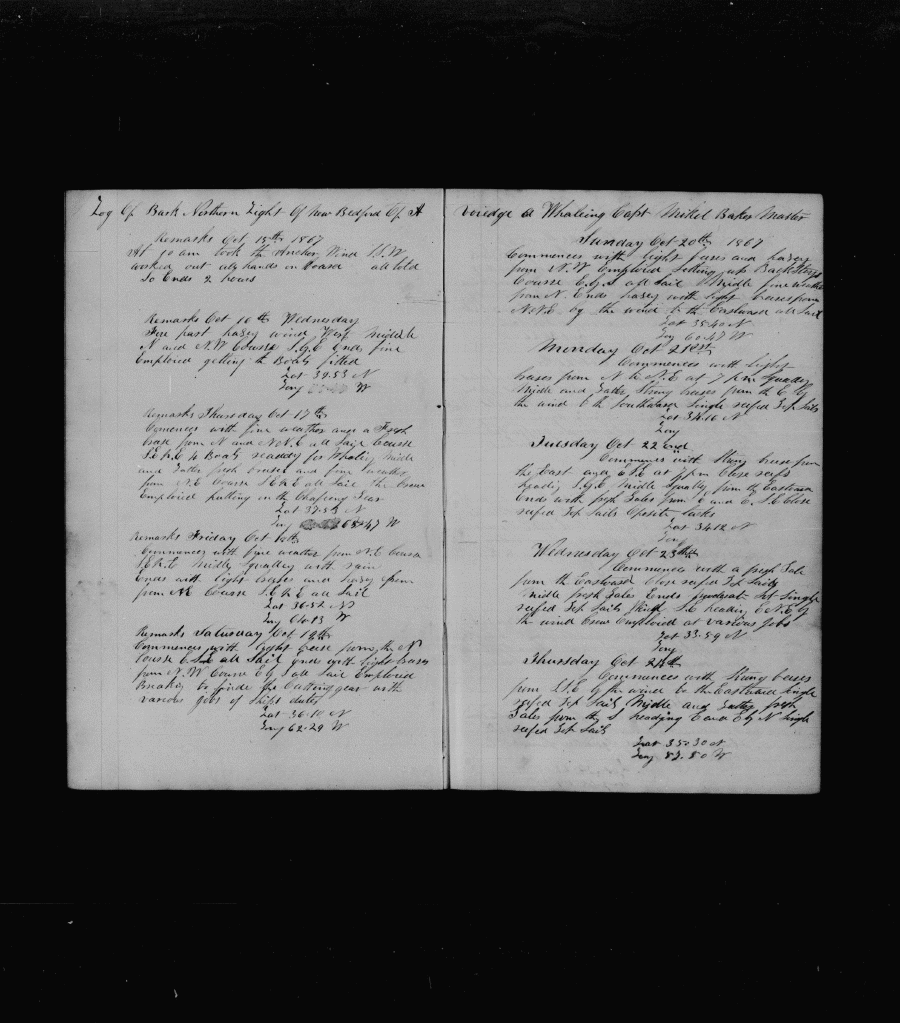 Log Of Bark Northern Light Of New Bedford Of A
Remarks Oct 15th 1867
At 10 am took the Anchor Wind S.W
worked out all hands on board all told
So Ends 2 hours
Remarks Oct 16th Wednesday
Fore part hazey wind West middle
N and N.W Course S.E Ends fine
Employed getting the Boats fitted
Lat 39.53 N
Long W
Remarks Thursday Oct 17th
Comences with fine weather and a Fresh
brese from N and N.N.E all Sail Course
S.E.E 4 Boats readdy for Whaling midle
and Latter fresh breses and fine weather
from N.E Course S.E.E all Sail the Crew
Employed putting on the Chafeing Gear
Lat 37.54 N
Long 65.47 W
Remarks Friday Oct 18th
Commences with fine weather from N.E Course
S.E.E midle Squalley with rain
Ends with light breses and hazey from
from NE Course S.E.E all Sail
Lat 36.52 N
Long W
Remarks Saturday Oct 19th
Commences with light brese from the N
Course all Sail ends with light breses
from N.W Course all Sail Employed
Breaking to finde the Cutting gear with
various jobs of Ships duties
Lat 36.10 N
Long 62.29 W
Voiedge a Whaleing Capt Mikel Baker Master
Sunday Oct 20th 1867
Commences with light breses and hazey
from N.W Employed Setting up Backstays
Course all Sail Midle fine weather
from N. Ends hazey with light breses from
N.N.E by the wind to the Eastward all Sail
Lat 35.40 N
Long 60.47 W
Monday Oct 21est
Commences with light
breses from N & N.E at 7 P.m Squalley
Midle and Latter Strong breses from the E by
the wind to the Southward Single reefed Top Sails
Lat 34.16 N
Long
Tuesday Oct 22end
Commences with Strong brese from
the East and at 7 pm Close reefed
heading S.E Midle Squalley from the Eastward
Ends with fresh Gales from E and E.S.E Close
reefed Top Sails Oposite tacks
Lat 34.12 N
Long
Wednesday Oct 23th
Commences with a fresh Gale
from the Eastward Close reefed Top Sails
midle fresh Gales Ends moderate Set Single
reefed Top Sails Wind S.E heading E.N.E by
the wind Crew Employed at various jobs
Lat 33.59 N
Long
Thursday Oct 24th
Commences with Strong breses
from S.S.E by the wind to the Eastward Single
reefed Top Sails Midle and Latter fresh
Gales from the S heading E and E by N Single
reefed Top Sails
Lat 35.30 N
Long W